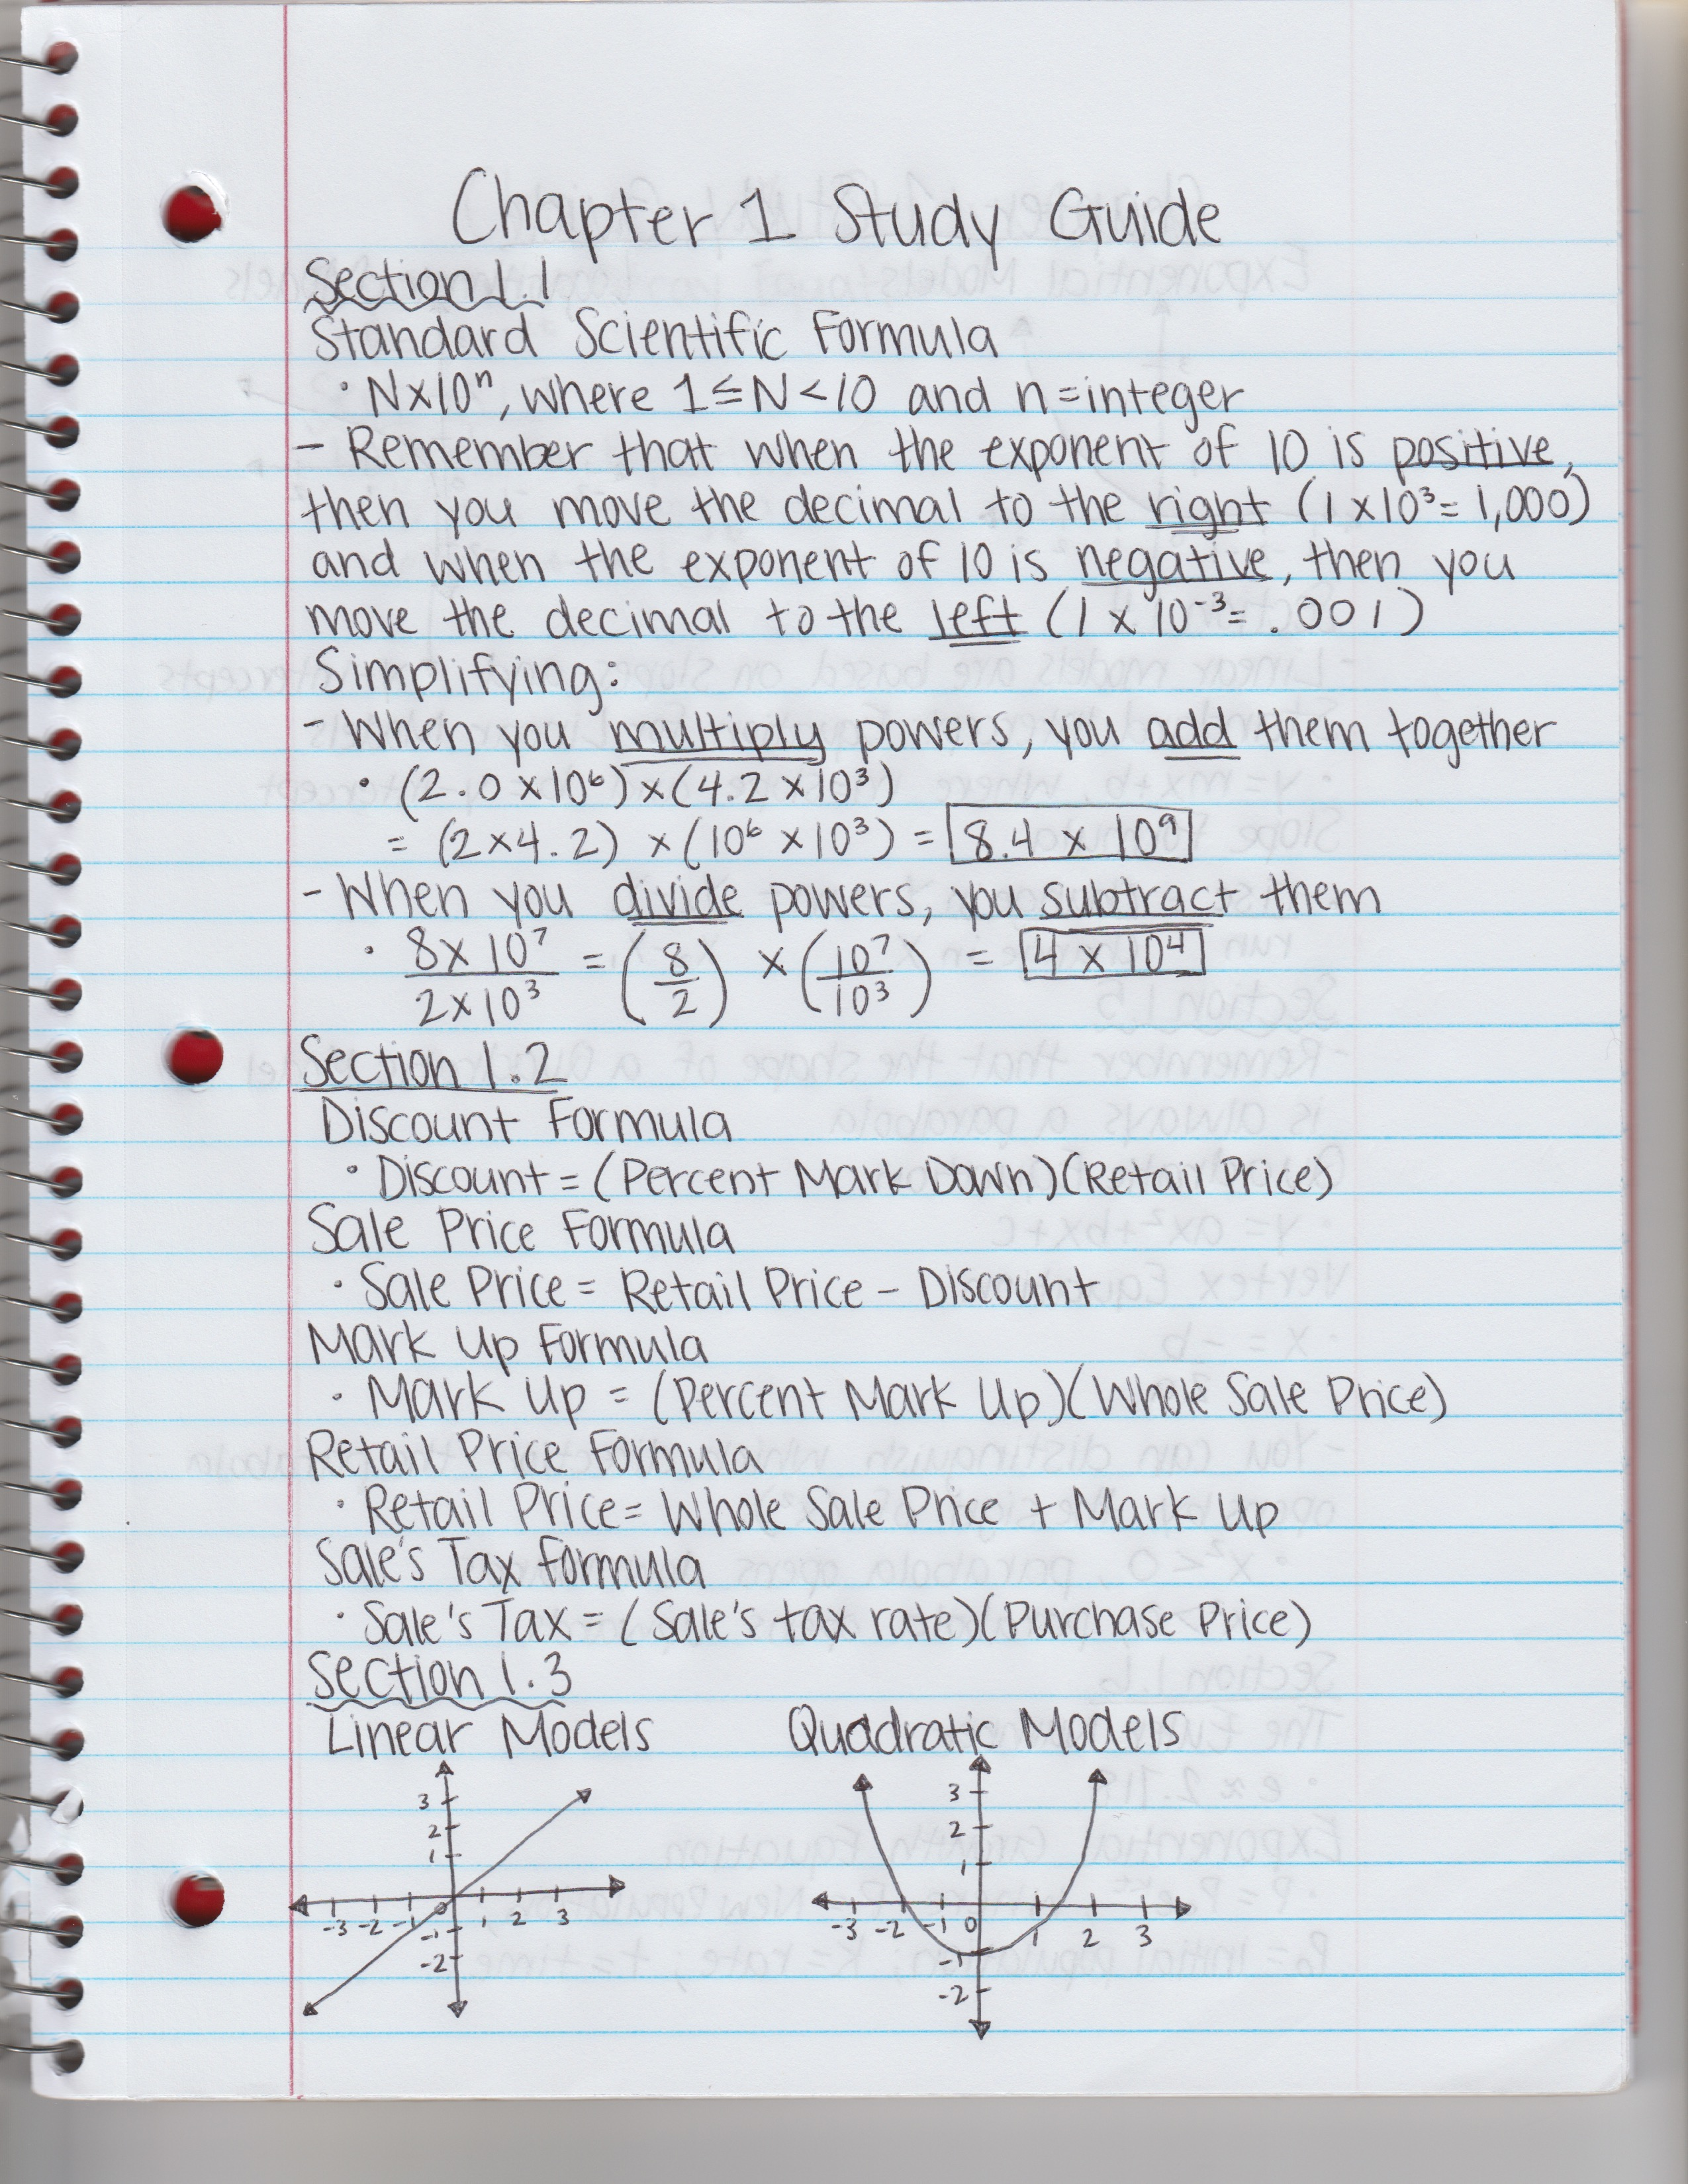 Chapter 1 Study Guide
Section 1.1
Standard Scientific Formula
· N×10ⁿ, where 1≤N<10 and n=integer
- Remember that when the exponent of 10 is positive,
then you move the decimal to the right (1×10³=1,000)
and when the exponent of 10 is negative, then you
move the decimal to the left (1×10⁻³=.001)
Simplifying:
- When you multiply powers, you add them together
· (2.0×10⁶)×(4.2×10³)
= (2×4.2) ×(10⁶×10³) = 8.4 × 10⁹
- When you divide powers, you subtract them
· 8×10⁷/2×10³ = (8/2) × (10⁷/10³) = 4 × 10⁴
Section 1.2
Discount Formula
· Discount = (Percent Mark Down)(Retail Price)
Sale Price Formula
· Sale Price = Retail Price - Discount
Mark Up Formula
· Mark Up = (Percent Mark Up)(Whole Sale Price)
Retail Price Formula
· Retail Price = Whole Sale Price + Mark Up
Sale's Tax Formula
· Sale's Tax = (Sale's tax rate)(Purchase Price)
Section 1.3
Linear Models Quadratic Models
3
2
1
-3 -2 -1 0 1 2 3
-1
-2
3
2
1
-3 -2 -1 0 1 2 3
-1
-2